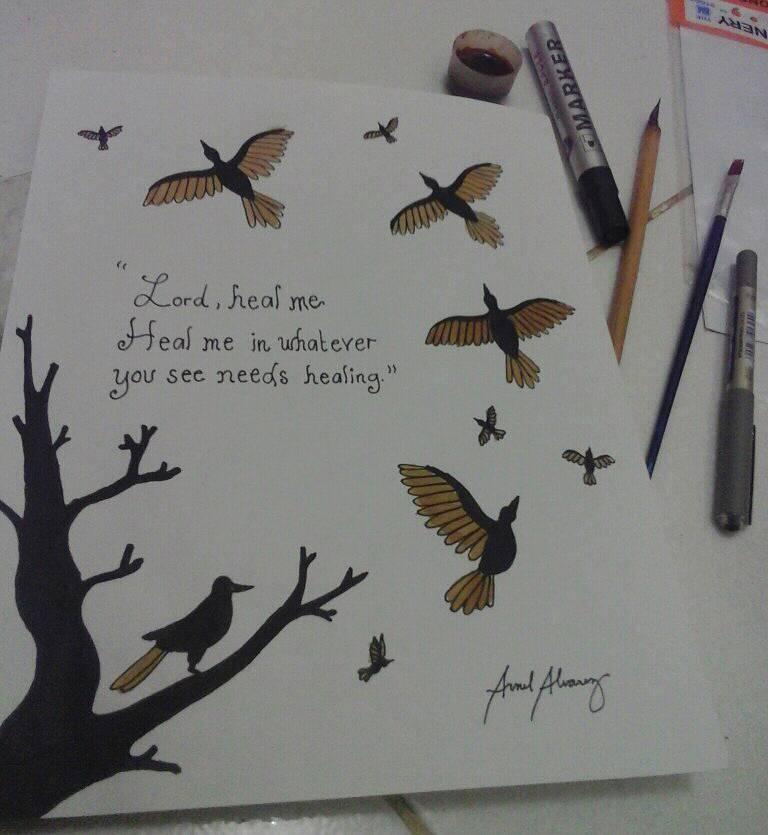 "Lord, heal me.
Heal me in whatever
you see needs healing."
Arnel Alvarez
MARKER
NERY